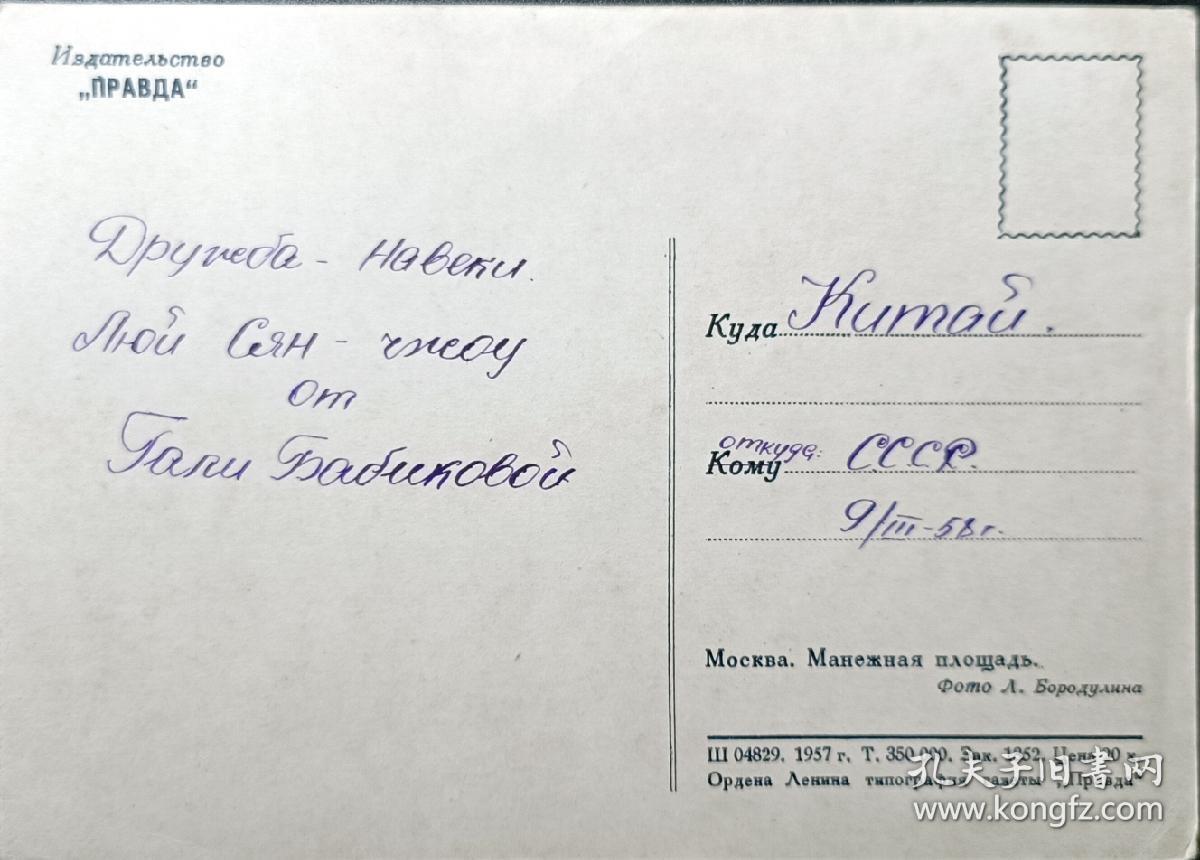 Издательство
„ПРАВДА“
Дружба - навеки.
Люй Сян - чжоу
от
Гали Бабиковой
Куда Китай.
откуда:
Кому СССР.
9/III-58 г.
Москва. Манежная площадь.
Фото Л. Бородулина
Ш 04829. 1957 г. Т. 350.000. Зак. 1262. Цена 20 к.
Ордена Ленина типография газеты „Правда“
孔夫子旧书网
www.kongfz.com